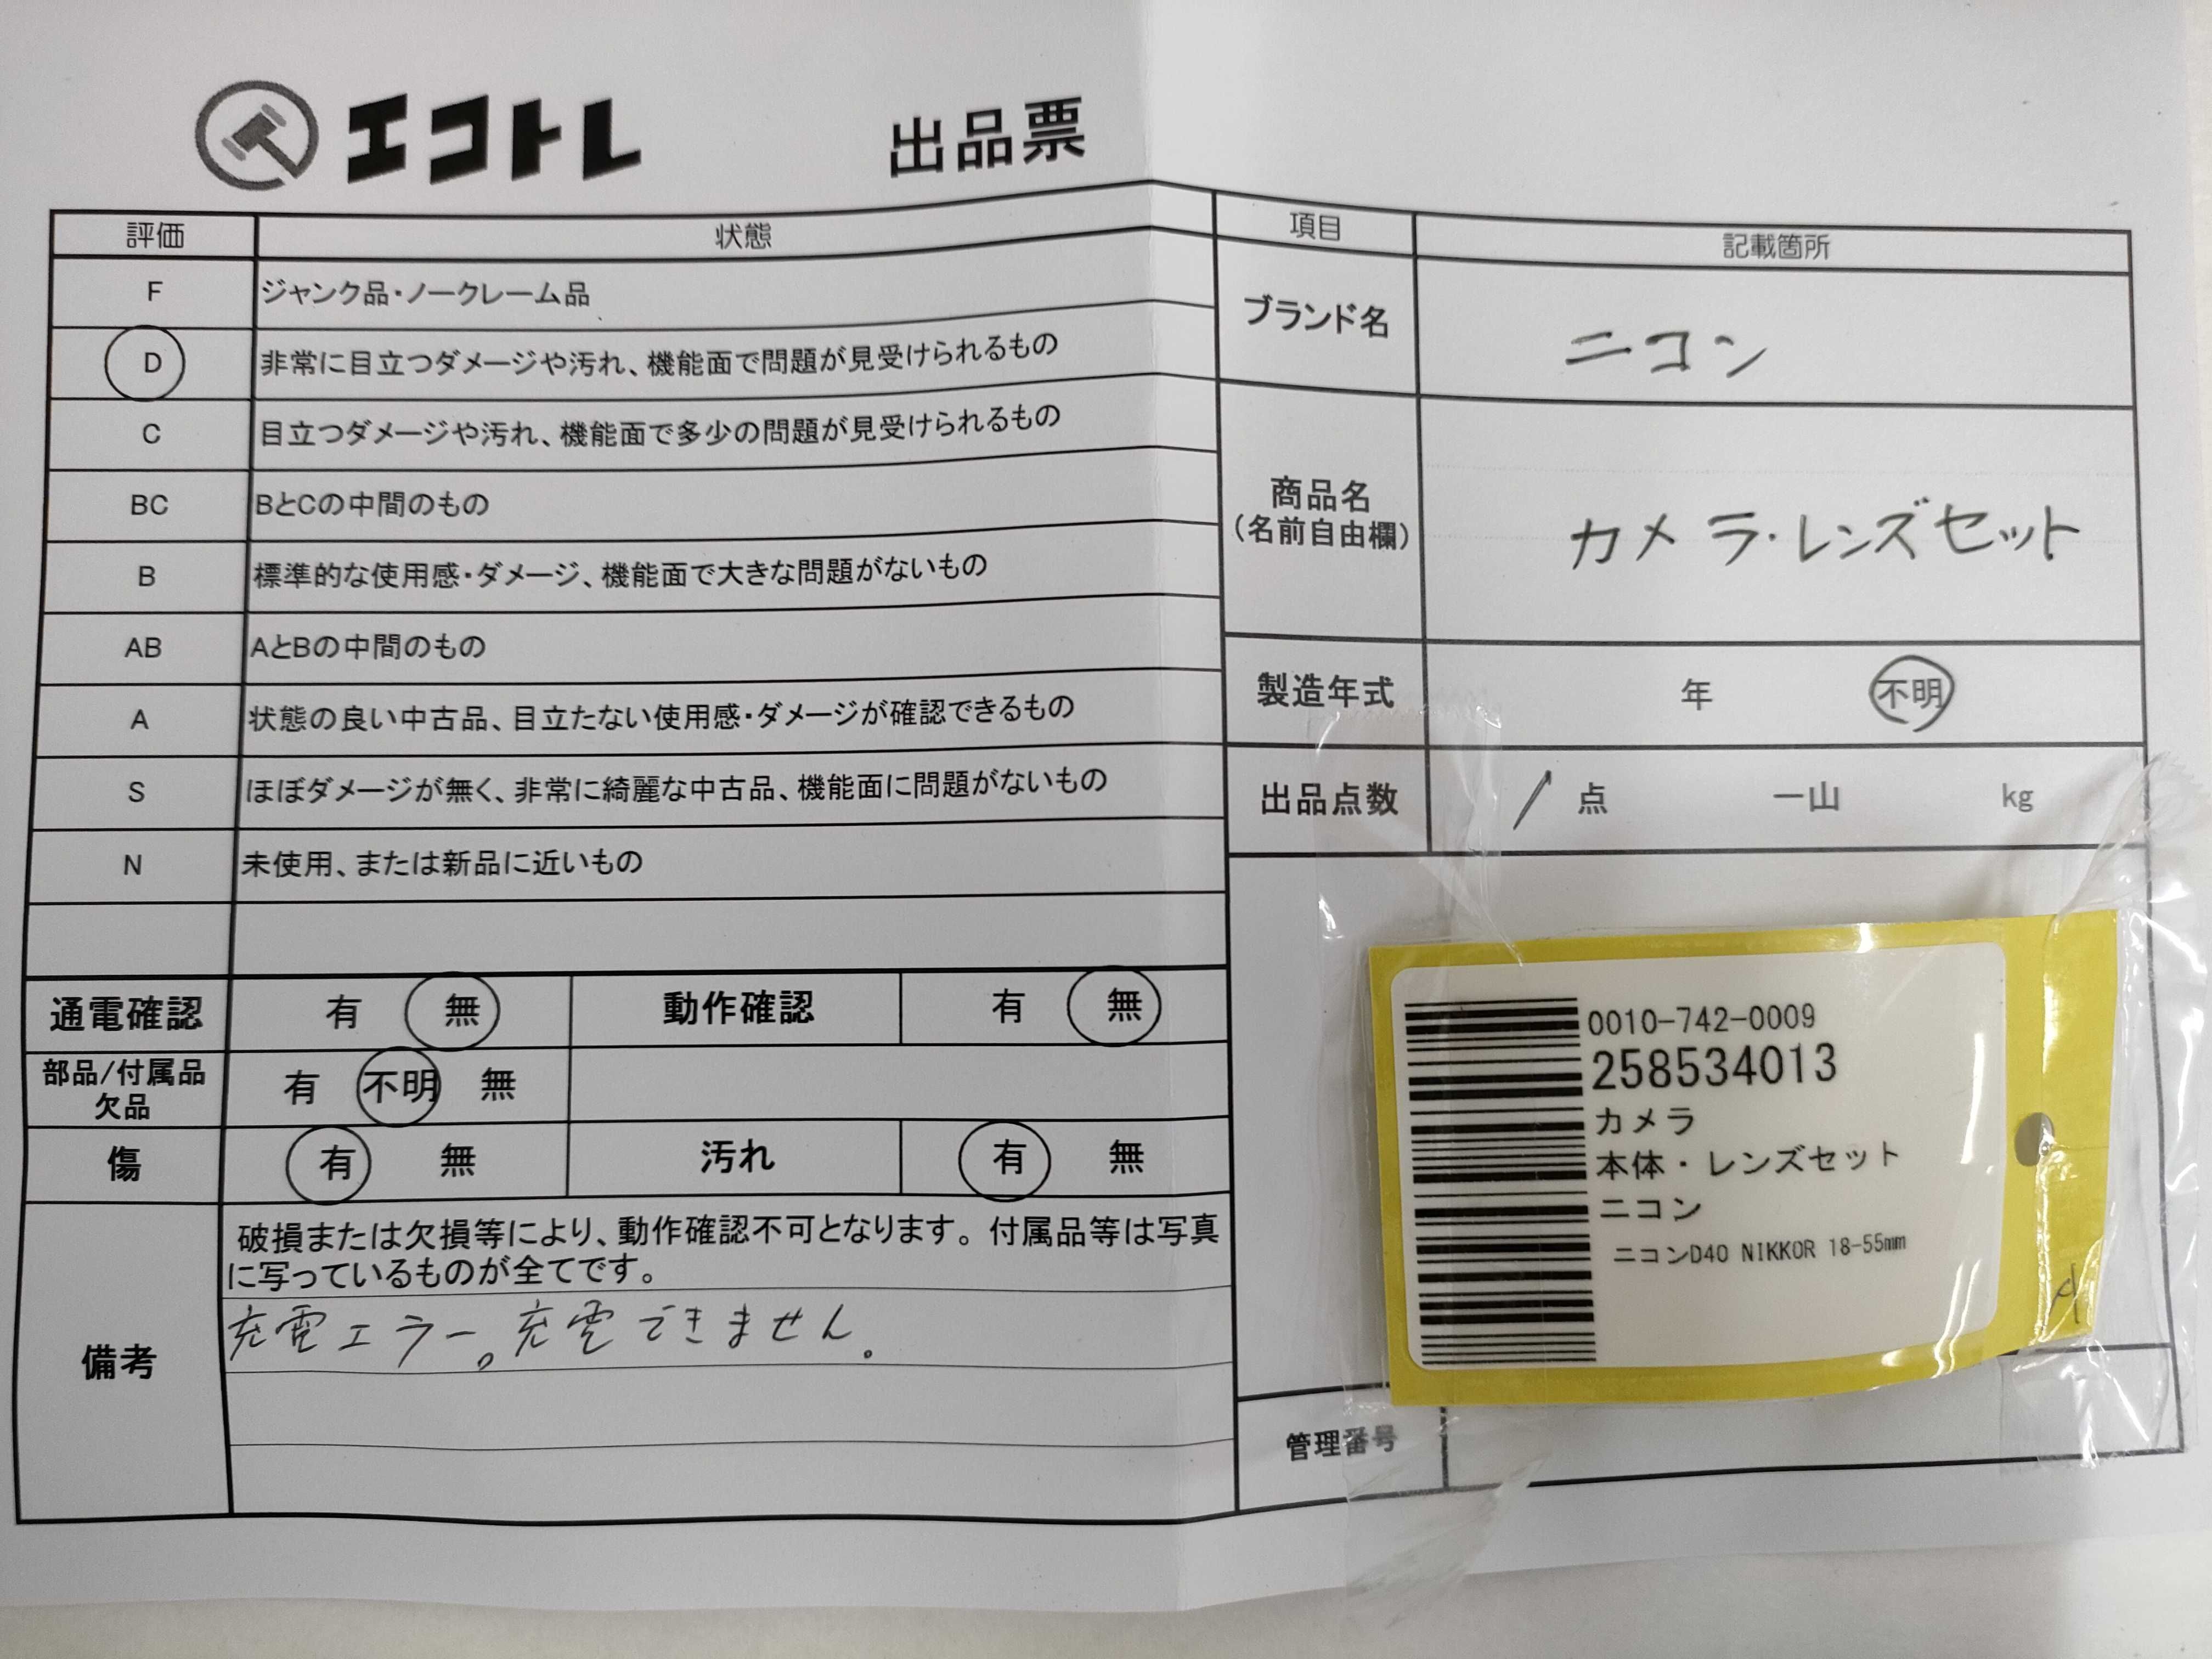 エコトレ 出品票
評価 状態
F ジャンク品・ノークレーム品
D 非常に目立つダメージや汚れ、機能面で問題が見受けられるもの
C 目立つダメージや汚れ、機能面で多少の問題が見受けられるもの
BC BとCの中間のもの
B 標準的な使用感・ダメージ、機能面で大きな問題がないもの
AB AとBの中間のもの
A 状態の良い中古品、目立たない使用感・ダメージが確認できるもの
S ほぼダメージが無く、非常に綺麗な中古品、機能面に問題がないもの
N 未使用、または新品に近いもの
通電確認 有 無 動作確認 有 無
部品/付属品
欠品 有 不明 無
傷 有 無 汚れ 有 無
備考
破損または欠損等により、動作確認不可となります。付属品等は写真
に写っているものが全てです。
充電エラー。充電できません。
項目 記載箇所
ブランド名 ニコン
商品名
(名前自由欄) カメラ・レンズセット
製造年式 年 不明
出品点数 1 点 一山 kg
0010-742-0009
258534013
カメラ
本体・レンズセット
ニコン
ニコンD40 NIKKOR 18-55mm
管理番号